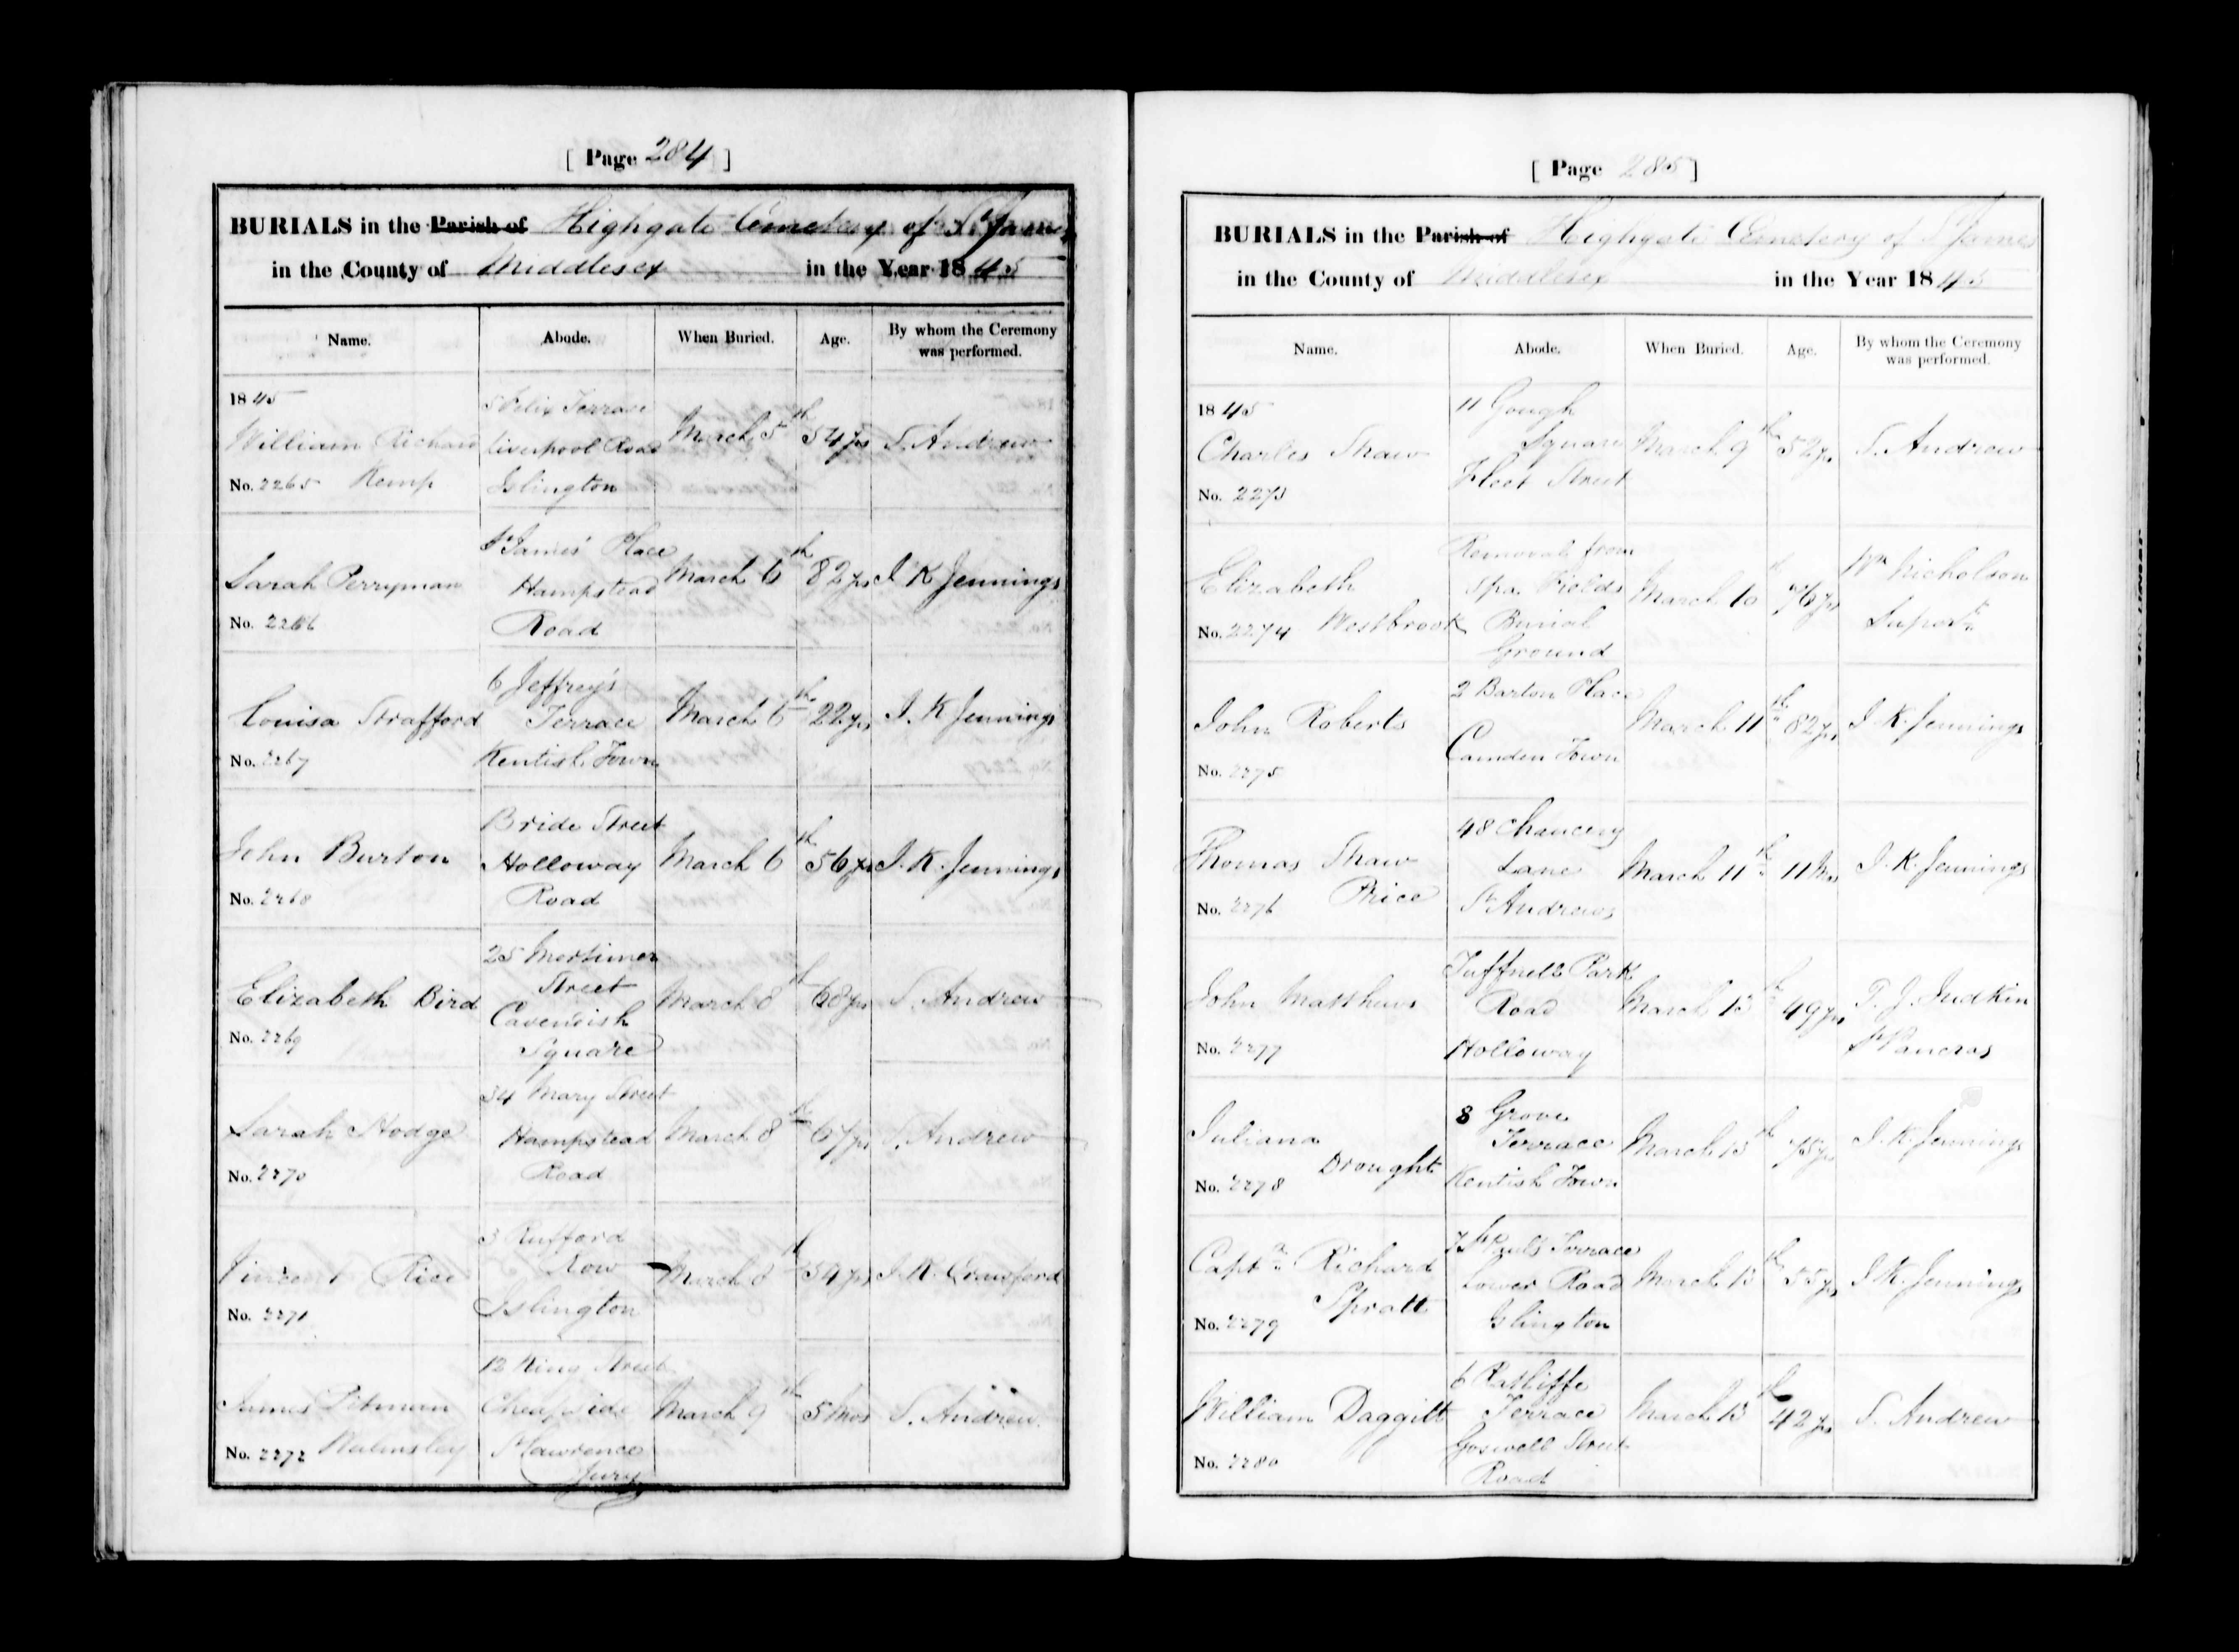 [ Page 284 ]
BURIALS in the Parish of Highgate Cemetery of St James
in the County of Middlesex in the Year 1845
Name. Abode. When Buried. Age. By whom the Ceremony was performed.
1845
William Richard Kemp
No. 2265
5 Felix Terrace
Liverpool Road
Islington
March 5th
54 yrs
S. Andrew
Sarah Perryman
No. 2266
St James' Place
Hampstead
Road
March 6th
82 yrs
J. K. Jennings
Louisa Strafford
No. 2267
6 Jeffrey's
Terrace
Kentish Town
March 6th
22 yrs
J. K. Jennings
John Burton
No. 2268
Bride Street
Holloway
Road
March 6th
56 yrs
J. K. Jennings
Elizabeth Bird
No. 2269
25 Mortimer
Street
Cavendish
Square
March 8th
68 yrs
S. Andrew
Sarah Hodge
No. 2270
34 Mary Street
Hampstead
Road
March 8th
67 yrs
S. Andrew
Vincent Rice
No. 2271
3 Rufford
Row
Islington
March 8th
54 yrs
J. K. Crawford
James Pitman
Walmsley
No. 2272
12 King Street
Cheapside
St Lawrence
Jury
March 9th
5 Mos
S. Andrew
[ Page 285 ]
BURIALS in the Parish of Highgate Cemetery of St James
in the County of Middlesex in the Year 1845
Name. Abode. When Buried. Age. By whom the Ceremony was performed.
1845
Charles Shaw
No. 2273
11 Gough
Square
Fleet Street
March 9th
52 yrs
S. Andrew
Elizabeth
Westbrook
No. 2274
Removal from
Spa Fields
Burial
Ground
March 10th
76 yrs
Wm Nicholson
Superdt
John Roberts
No. 2275
2 Barton Place
Camden Town
March 11th
82 yrs
J. K. Jennings
Thomas Shaw
Price
No. 2276
48 Chancery
Lane
St Andrews
March 11th
11 Mos
J. K. Jennings
John Matthews
No. 2277
Tuffnell Park
Road
Holloway
March 13th
49 yrs
T. J. Judkin
St Pancras
Juliana
Drought
No. 2278
8 Grove
Terrace
Kentish Town
March 13th
75 yrs
J. K. Jennings
Captn Richard
Spratt
No. 2279
7 St Pauls Terrace
Lower Road
Islington
March 13th
55 yrs
J. K. Jennings
William Daggitt
No. 2280
6 Ratliffe
Terrace
Goswell Street
Road
March 13th
42 yrs
S. Andrew